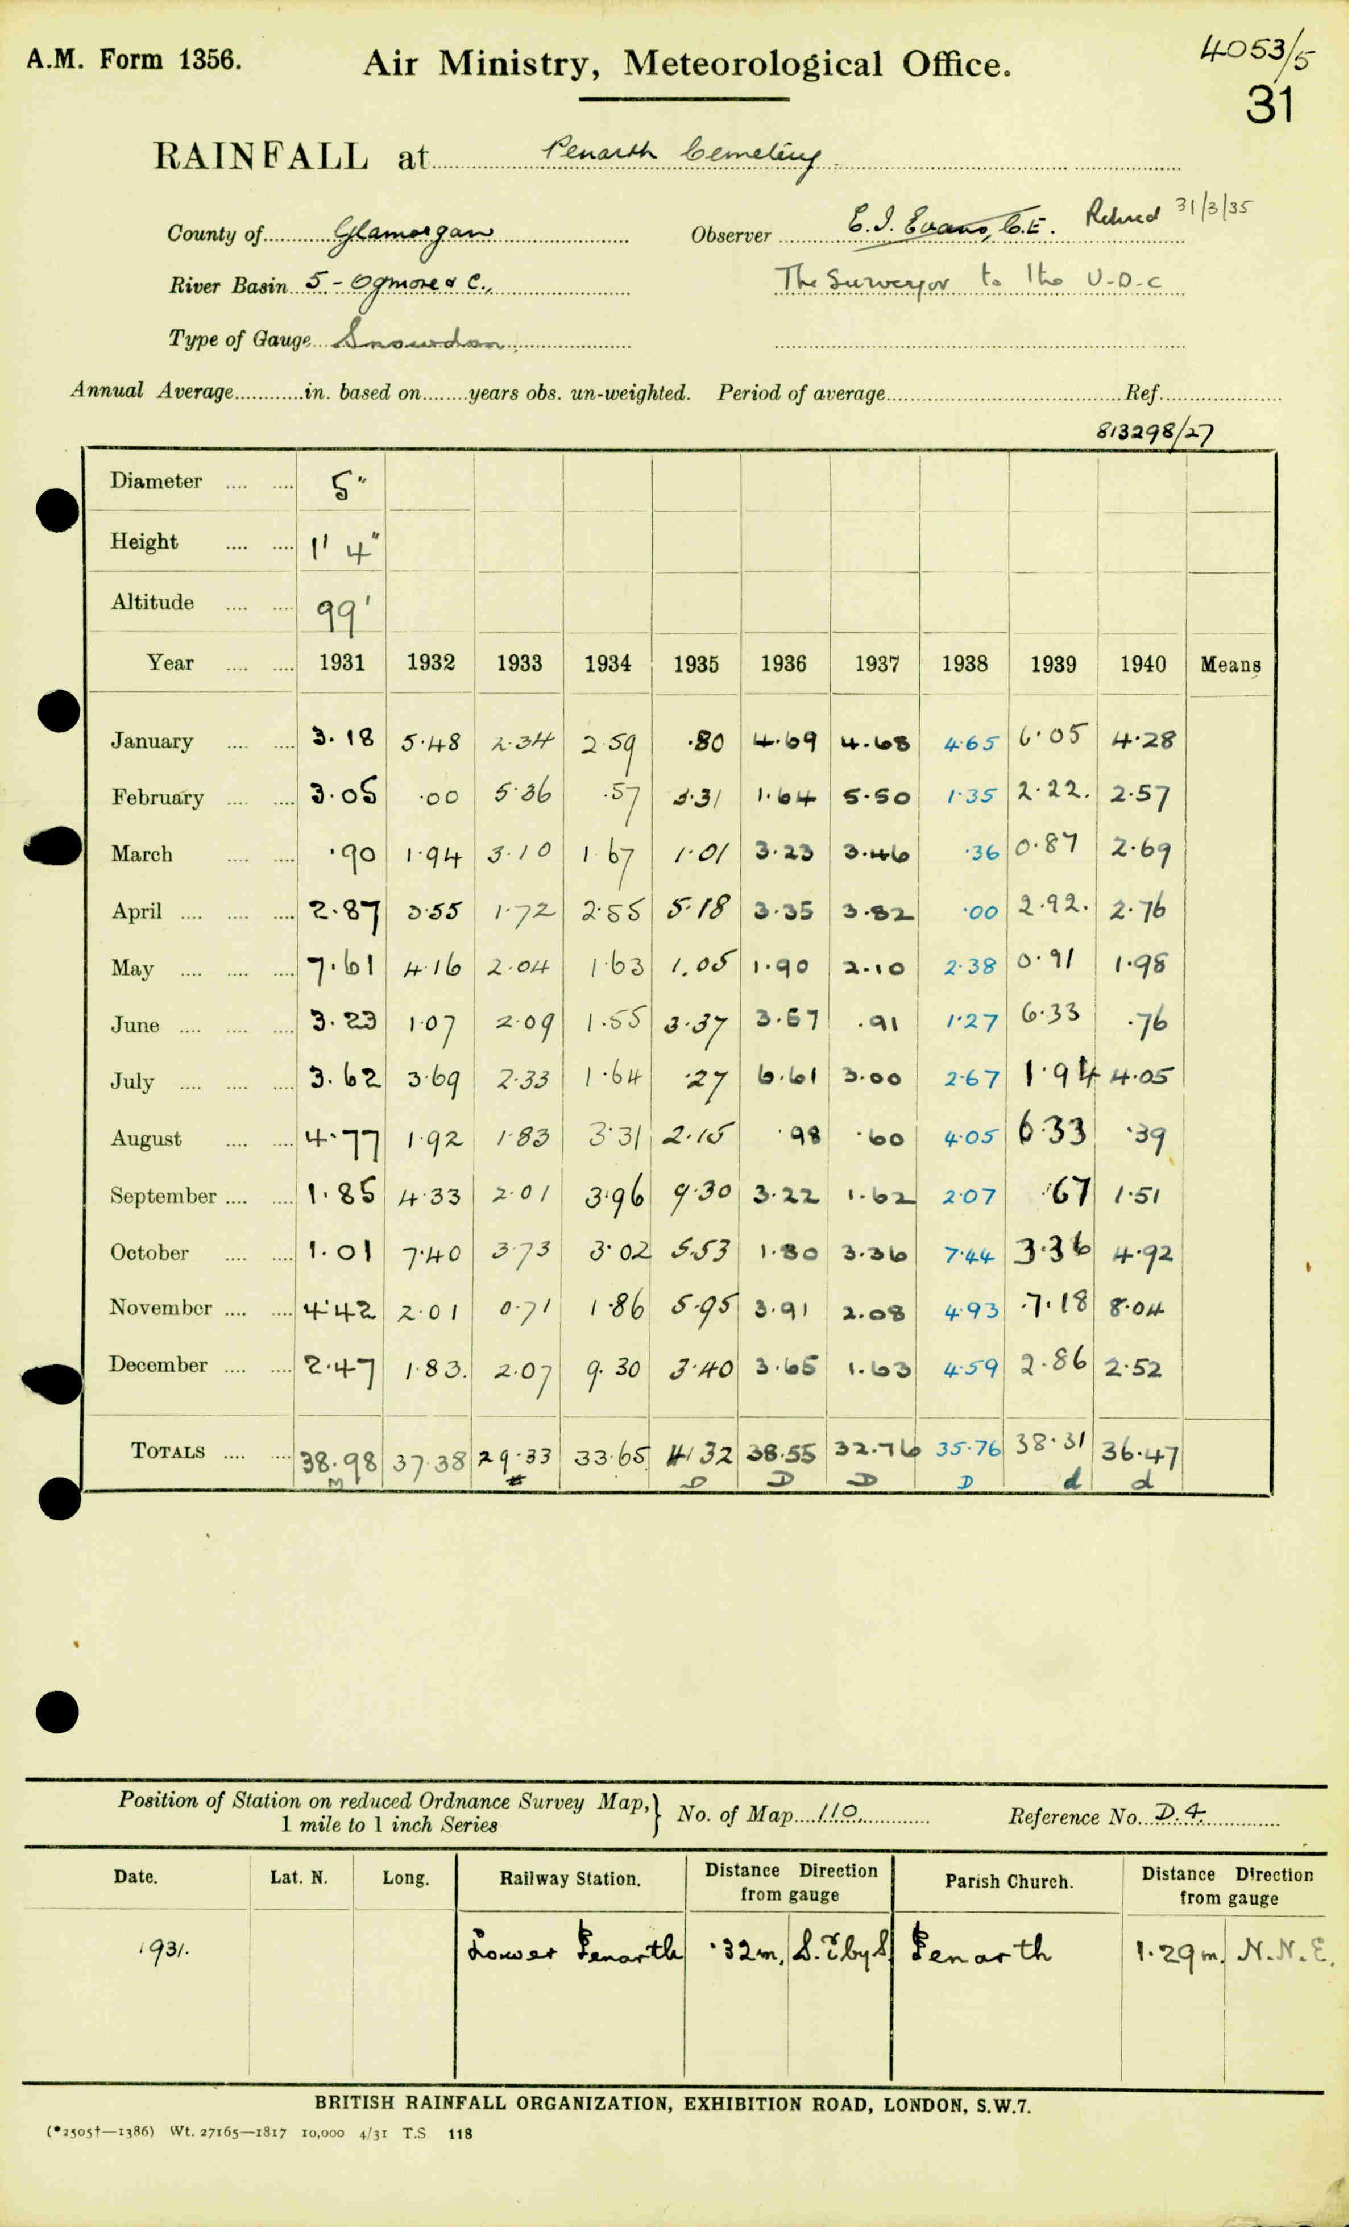 A.M. Form 1356.
Air Ministry, Meteorological Office.
4053/5
31
RAINFALL at Penarth Cemetery
County of Glamorgan Observer E. J. Evans, C.E. Retired 31/3/35
River Basin 5 - Ogmore &c., The Surveyor to the U.D.C
Type of Gauge Snowdon.
Annual Average in. based on years obs. un-weighted. Period of average Ref.
813298/27
Diameter 5"
Height 1' 4"
Altitude 99'
Year 1931 1932 1933 1934 1935 1936 1937 1938 1939 1940 Means
January 3.18 5.48 2.34 2.59 .80 4.69 4.68 4.65 6.05 4.28
February 3.05 .00 5.36 .57 3.31 1.64 5.50 1.35 2.22. 2.57
March .90 1.94 3.10 1.67 1.01 3.23 3.46 .36 0.87 2.69
April 2.87 3.55 1.72 2.55 5.18 3.35 3.82 .00 2.92. 2.76
May 7.61 4.16 2.04 1.63 1.05 1.90 2.10 2.38 0.91 1.98
June 3.23 1.07 2.09 1.55 3.37 3.57 .91 1.27 6.33 .76
July 3.62 3.69 2.33 1.64 .27 6.61 3.00 2.67 1.94 4.05
August 4.77 1.92 1.83 3.31 2.15 .98 .60 4.05 6.33 .39
September 1.85 4.33 2.01 3.96 9.30 3.22 1.62 2.07 .67 1.51
October 1.01 7.40 3.73 3.02 5.53 1.80 3.36 7.44 3.36 4.92
November 4.42 2.01 0.71 1.86 5.95 3.91 2.08 4.93 .7.18 8.04
December 2.47 1.83. 2.07 9.30 3.40 3.65 1.63 4.59 2.86 2.52
TOTALS 38.98 37.38 29.33 33.65 41.32 38.55 32.76 35.76 38.31 36.47
M # D D D D d d
Position of Station on reduced Ordnance Survey Map, } No. of Map 110 Reference No. D.4.
1 mile to 1 inch Series
Date. Lat. N. Long. Railway Station. Distance Direction from gauge Parish Church. Distance Direction from gauge
1931. Lower Penarth .32m. S.E by S. Penarth 1.29m. N.N.E.
BRITISH RAINFALL ORGANIZATION, EXHIBITION ROAD, LONDON, S.W.7.
(*2505†—1386) Wt. 27165—1817 10,000 4/31 T.S 118